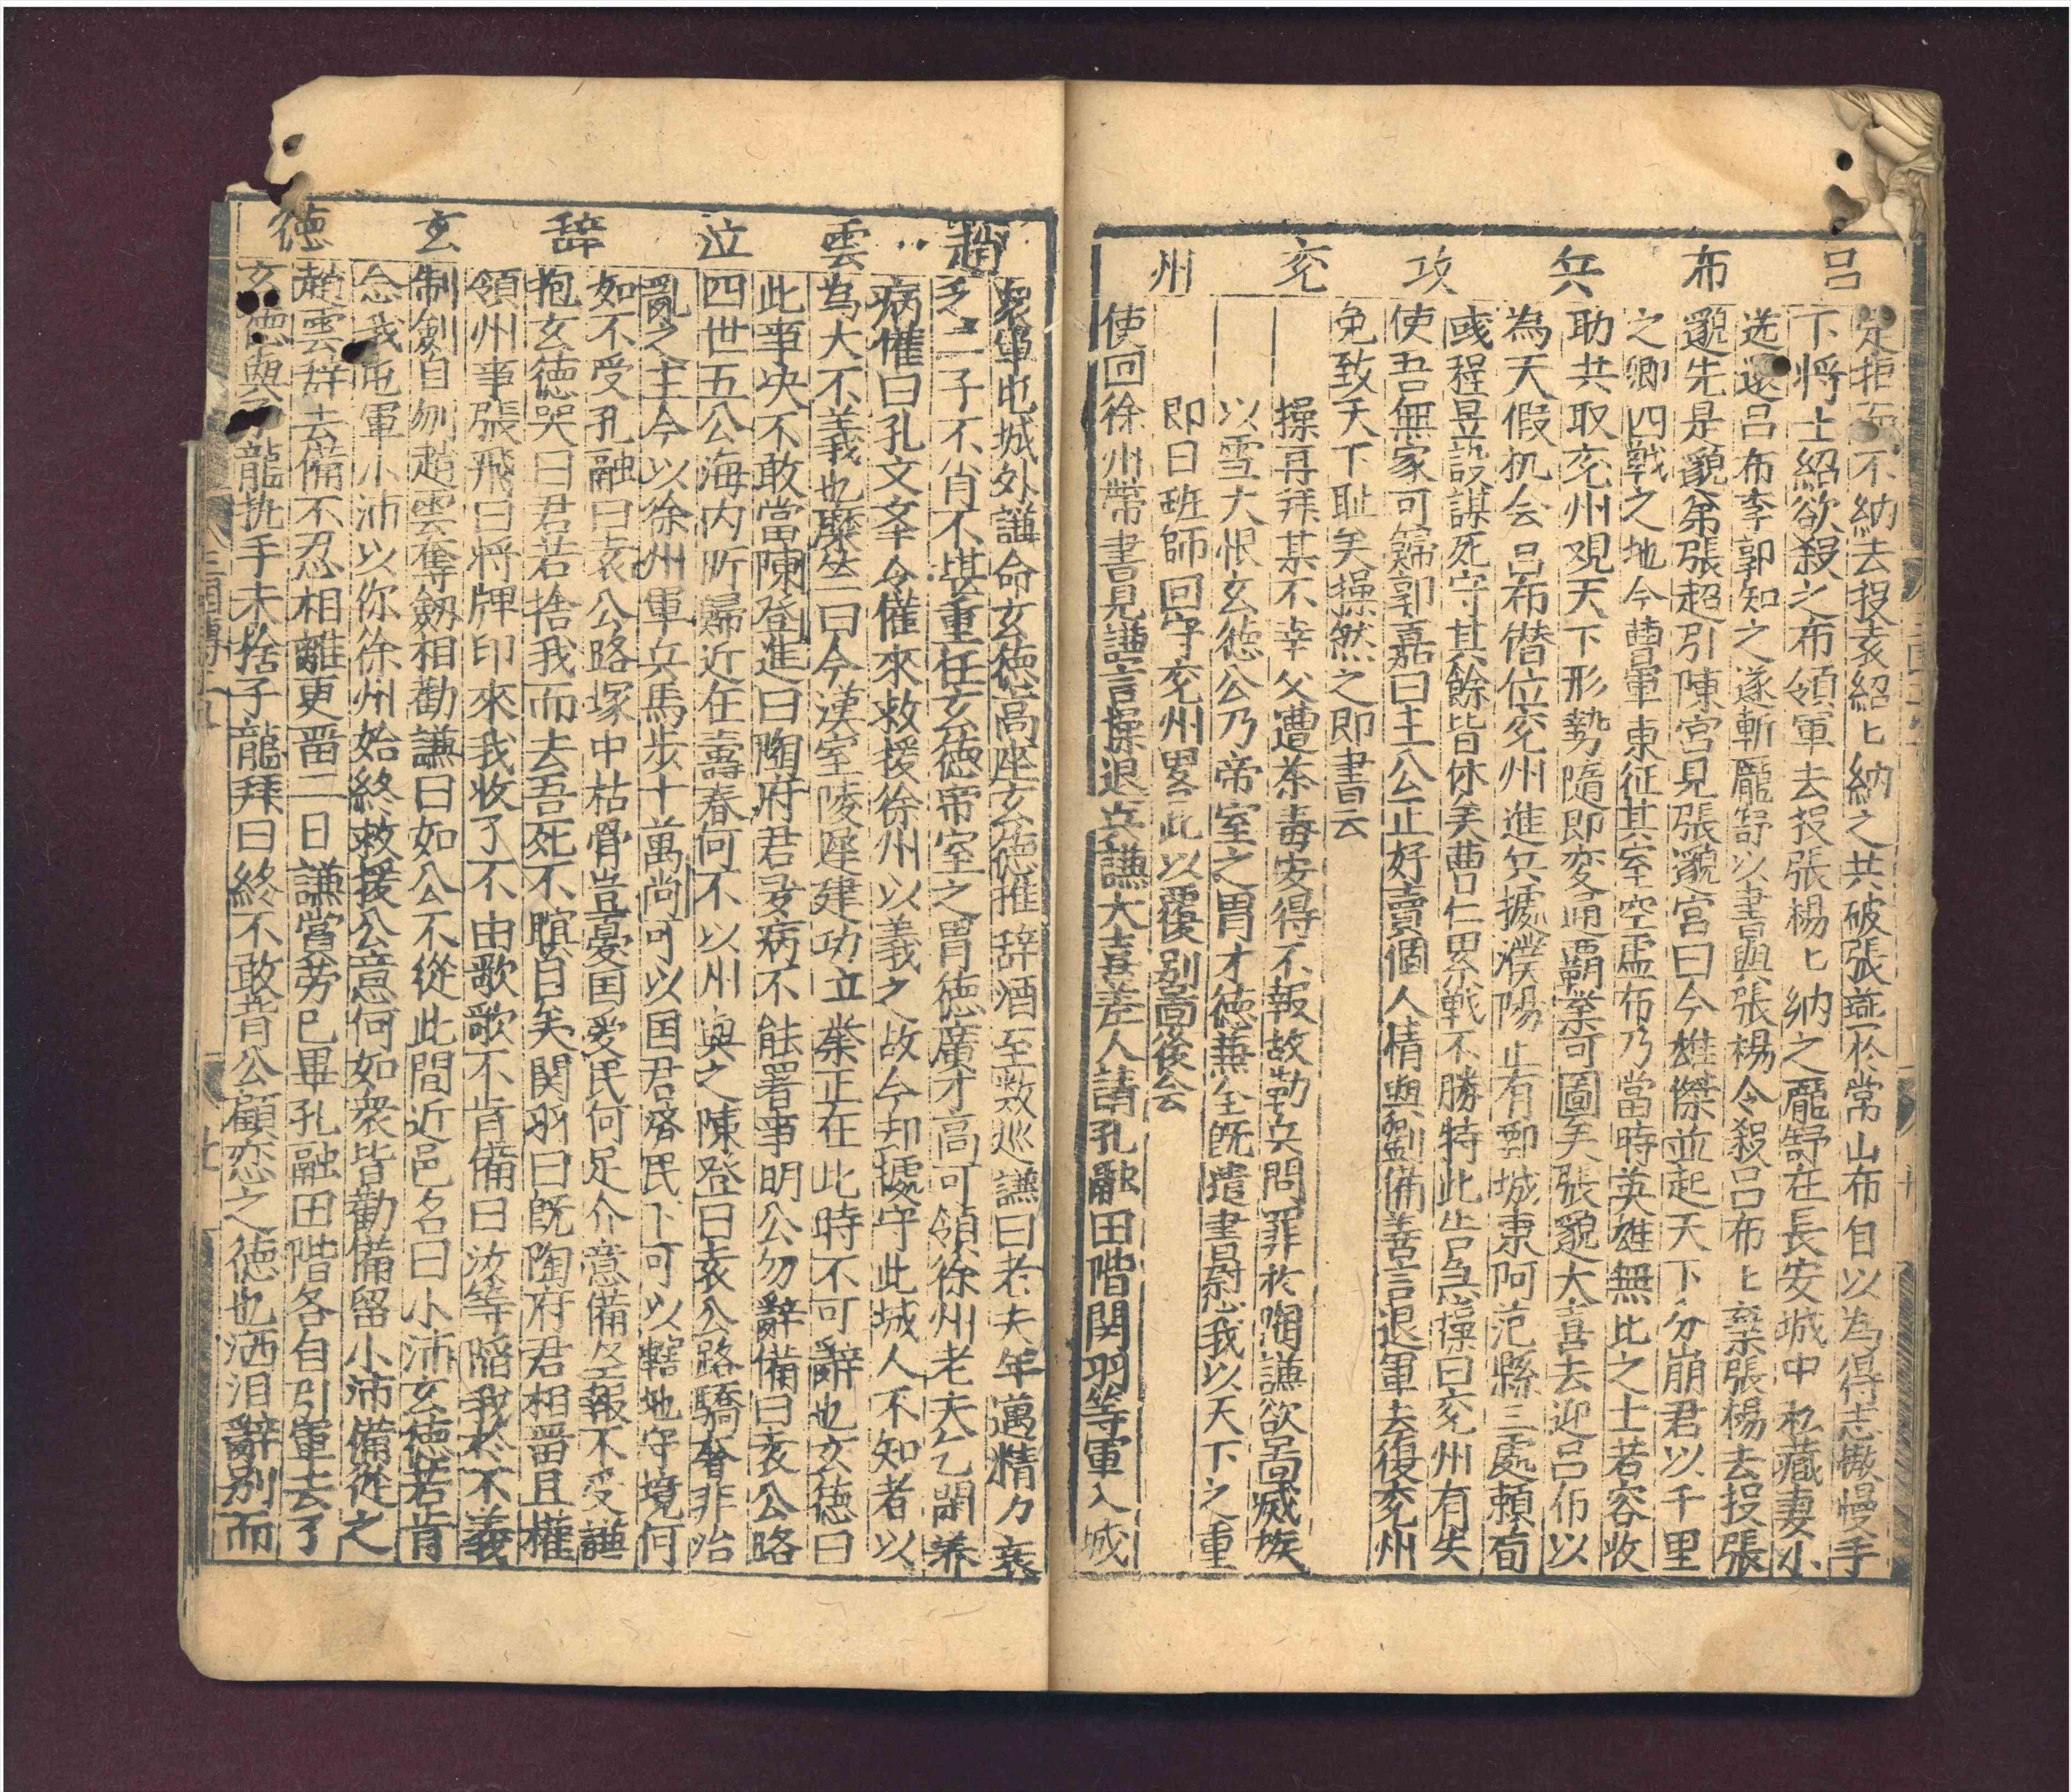 呂布兵攻兖州
定拒而不納去投袁紹匕納之共破張燕於常山布自以為得志傲慢手
下將士紹欲殺之布領軍去投張楊匕納之龐舒在長安城中私藏妻小
送還呂布李郭知之遂斬龐舒以書與張楊令殺呂布匕棄張楊去投張
邈先是邈弟張超引陳宮見張邈宮曰今雄傑並起天下分崩君以千里
之卿四戰之地今曹軍東征其室空虛布乃當時英雄無比之士若容收
助共取兖州观天下形勢隨即変通霸業可圖矣張邈大喜去迎呂布以
為天假机会呂布借位兖州進兵據濮陽止有鄄城東阿范縣三處賴荀
彧程昱設謀死守其餘皆休矣曹仁累戰不勝特此告急操曰兖州有失
使吾無家可歸郭嘉曰主公正好賣個人情與劉備善言退軍去復兖州
免致天下耻矣操然之即書云
操再拜某不幸父遭荼毒安得不報故勒兵問罪於陶謙欲啚滅族
以雪大恨玄德公乃帝室之胄才德兼全既遣書慰我以天下之重
即日班師回守兖州畧此以覆別啚後会
使回徐州帶書見謙言操退兵謙大喜差人請孔融田階関羽等軍入城
趙雲泣辞玄德
衆軍屯城外謙命玄德高座玄德推辞酒至数巡謙曰老夫年邁精力衰
乏二子不肖不堪重任玄德帝室之胄德廣才高可領徐州老夫乞閑养
病備曰孔文举令備來救援徐州以義之故今却據守此城人不知者以
為大不義也糜竺曰今漢室陵遲建功立業正在此時不可辭也玄德曰
此事决不敢當陳登進曰陶府君多病不能署事明公勿辭備曰袁公路
四世五公海内所歸近在壽春何不以州與之陳登曰袁公路驕奢非治
亂之主今以徐州軍兵馬步十萬尚可以国君濟民下可以轄地守境何
如不受孔融曰袁公路塚中枯骨豈憂国愛民何足介意備坚報不受謙
抱玄德哭曰君若捨我而去吾死不瞑目矣関羽曰既陶府君相畱且權
領州事張飛曰将牌印來我收了不由歌歌不肯備曰汝等陷我於不義
制劍自刎趙雲奪劔相勸謙曰如公不從此間近邑名曰小沛玄德若肯
念我屯軍小沛以你徐州始終救援公意何如衆皆勸備留小沛備從之
趙雲辞去備不忍相離更畱二日謙當劳已畢孔融田階各自引軍去了
玄德與子龍执手未捨子龍拜曰終不敢背公顧恋之德也洒泪辭别而